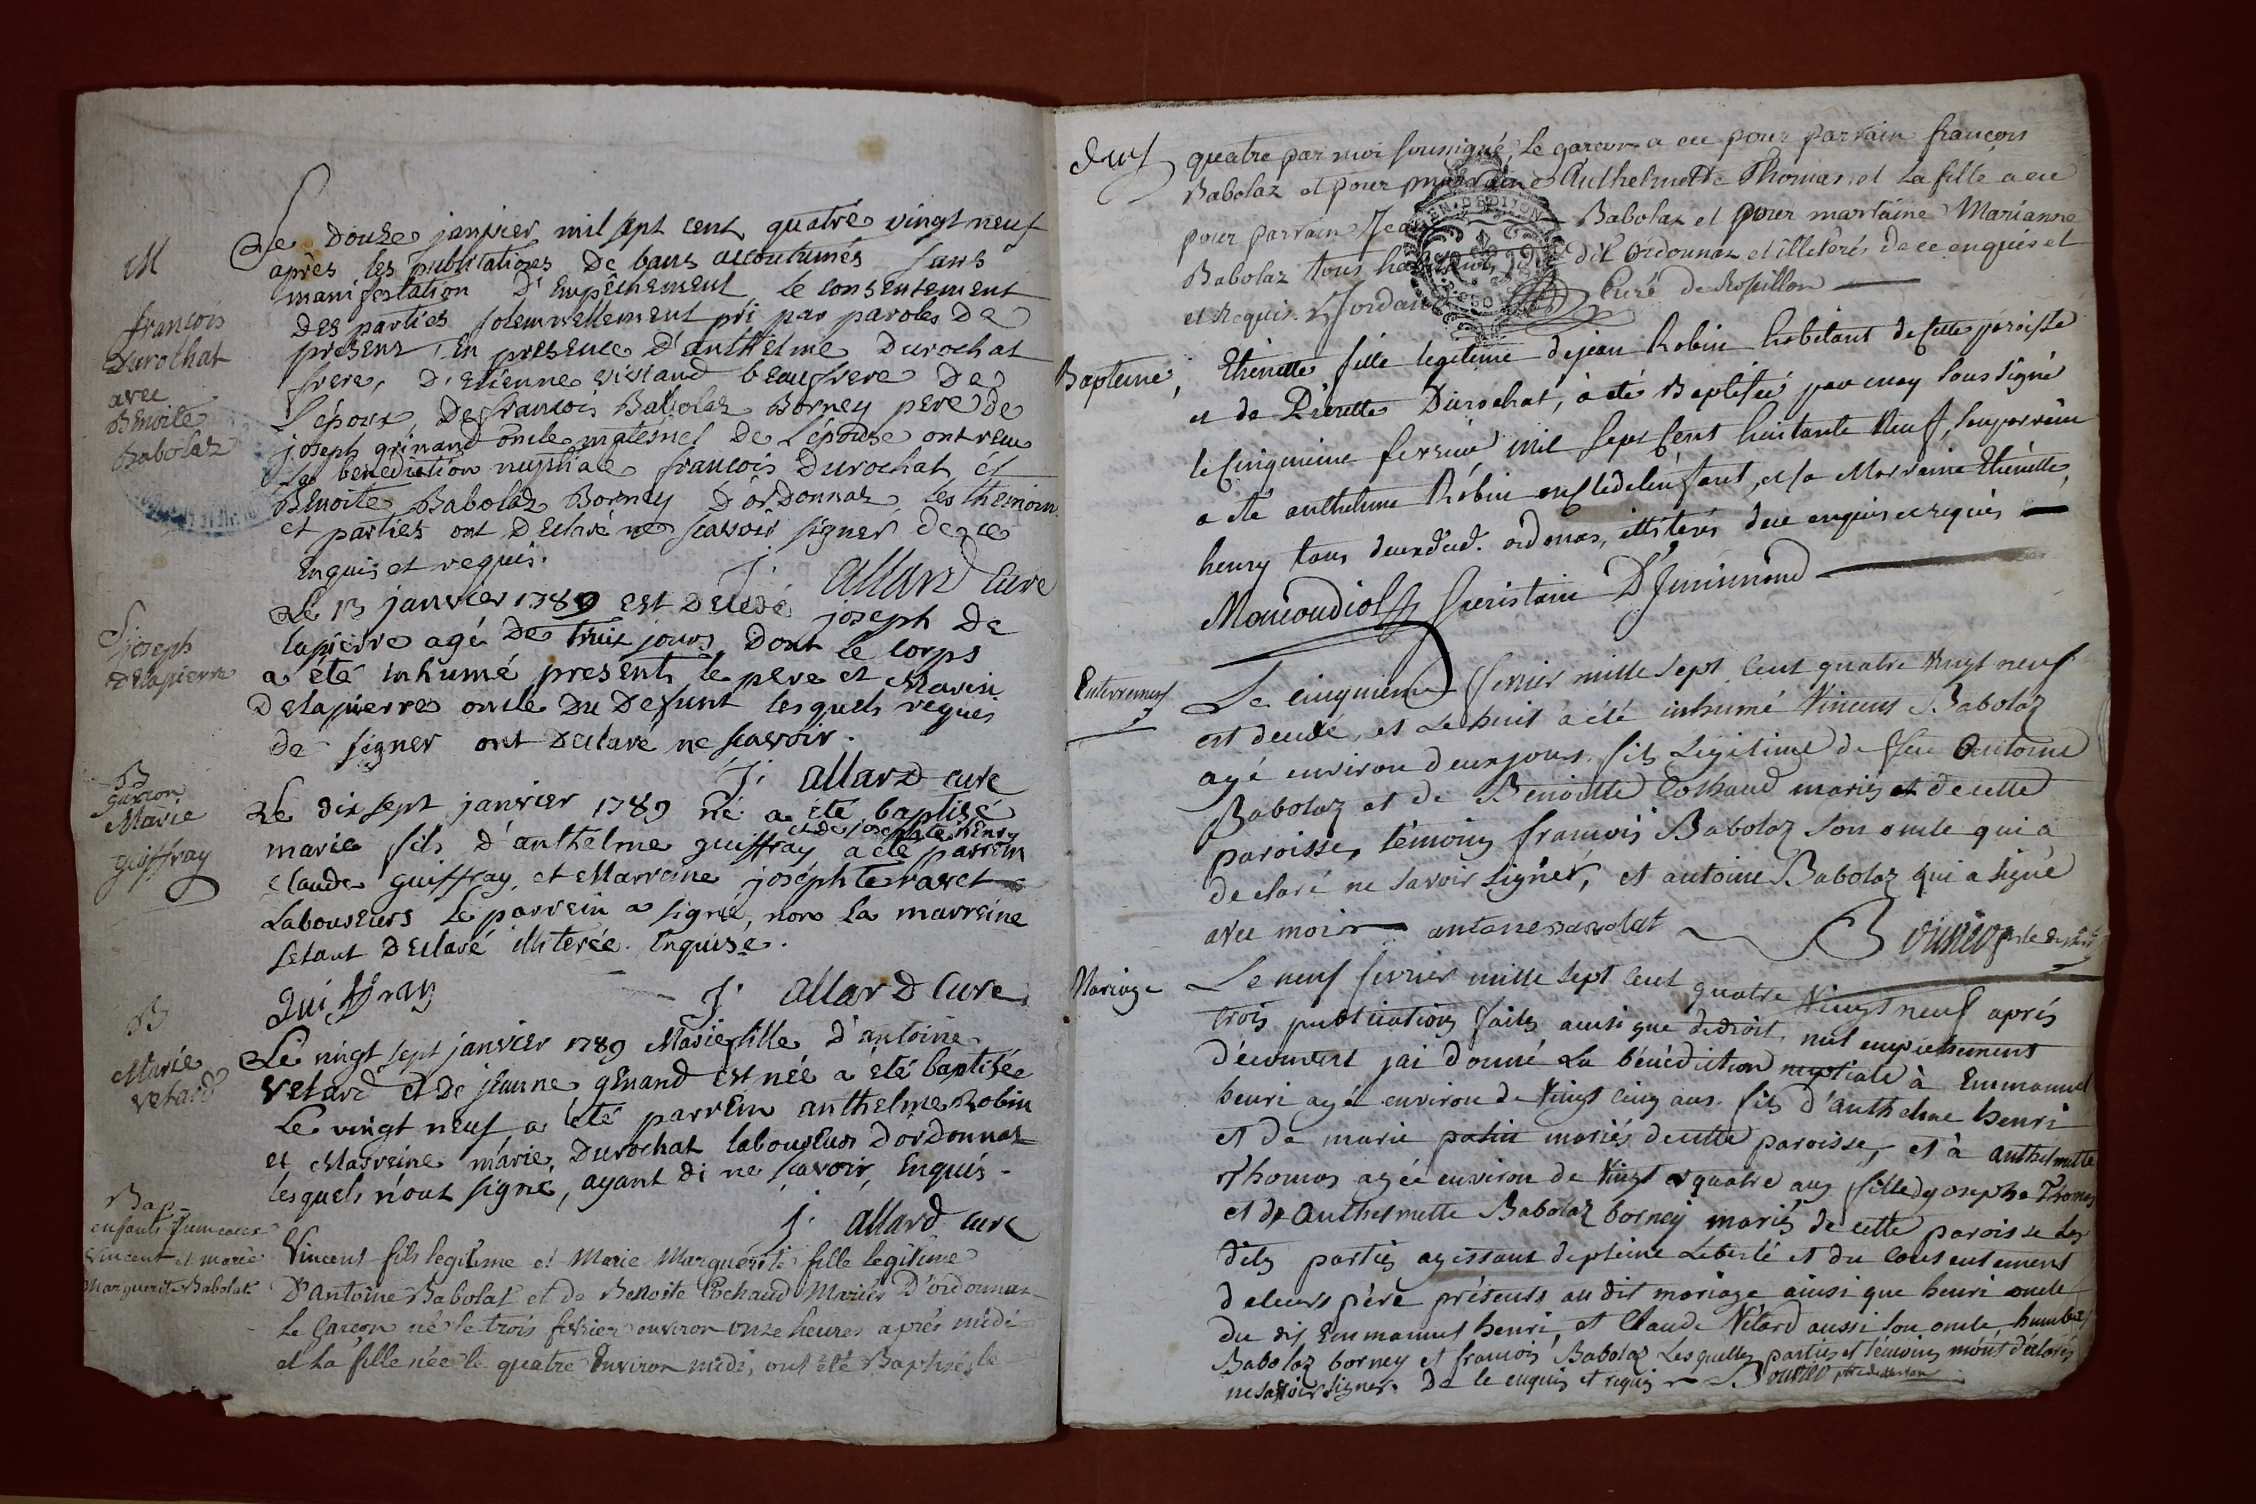 M
françois
Durochat
avec
Benoite
Babolaz
Le douze janvier mil sept cent quatre vingt neuf
après les publications de bans accoutumés sans
manifestation d'empêchement le consentement
des parties solemnellement pri par paroles de
present, en presence d'anthelme Durochat
frere, d'etienne vivand beaufrere de
l'époux, de françois Babolaz Borney pere de
joseph grinand oncle maternel de l'épouse ont reçu
la benediction nuptiale françois Durochat, et
Benoite Babolaz Borney d'ordonnaz les themoin
et parties ont declaré ne scavoir signer de ce
enquis et requis.
J. allard curé
joseph
delapierre
Le 13 janvier 1789 est décédé joseph de
lapierre agé de trois jours dont le corps
a été inhumé presents le pere et Marin
delapierre oncle du defunt lesquels requis
de signer ont declaré ne scavoir.
J. allard curé
B
garçon
Marie
guiffray
Le dix sept janvier 1789 né a été baptisé
marie fils d'anthelme guiffray et de josephte henry a été parrein
claude guiffray, et Marreine josephte ravet
Laboureurs le parrein a signé, non la marreine
setant declaré illiterée. enquise.
guiffray
J. allard curé
B
Marie
vetard
Le vingt sept janvier 1789 Marie fille d'antoine
vetard et de jeanne genand est née a été baptisée
Le vingt neuf a été parrein anthelme Robin
et Marreine marie Durochat laboureurs d'ordonnaz
lesquels n'ont signé, ayant di ne scavoir, enquis.
J. allard curé
Bap.
enfants jumeaux
Vincent et marie
Marguerite Babolat
Vincent fils legitime et Marie Marguerite fille legitime
D'Antoine Babolat et de Benoite Cochaud Mariés D'ordonnaz
le Garçon né le trois fevrier environ onze heures après midi
et la fille née le quatre environ midi, ont été Baptisés le
quatre par moi soussigné, le garçon a eu pour parrain françois
Babolaz et pour marraine Anthelmette Thomas et la fille a eu
pour parrain Jean Babolaz et pour marraine Marianne
Babolaz tous dit Ordonnaz et illiterés de ce enquis et
et Requis. Jordan Curé de Rossillon
Bapteme,
Etienette fille legitime de jean Robin habitant de cette paroisse
et de Pierette Durochat, a été Baptisée par moy sous signé
le cinquieme fevrier mil sept cent huitante neuf, son parrein
a été anthelme Robin oncle de l'enfant, et sa Marraine Etienette
henry tous deux dud. ordonas, illiterés de ce enquis et requis
Moncoudiol sacristain D'Innimond
Enterrement
Le cinquieme fevrier mille sept cent quatre vingt neuf
est decedé, et le huit a été inhumé Vincent Babolaz
agé environ deux jours, fils Légitime de feu Antoine
Babolaz et de Benoitte Cochaud mariés de cette
paroisse, témoins françois Babolaz son oncle qui a
declaré ne savoir signer, et antoine Babolaz qui a signé
avec moi antone babolat
Mariage
Le neuf fevrier mille sept cent quatre Vingt neuf après
trois publications faites ainsi que de droit, nul empêchement
découvert jai donné la bénédiction nuptiale à Emmanuel
henri agé environ de vingt cinq ans fils d'anthelme henri
et de marie patin mariés de cette paroisse, et à anthelmette
Thomas agée environ de vingt et quatre ans fille de joseph Thomas
et de Anthelmette Babolaz borney mariés de cette paroisse Les
dites parties agissant de pleine Liberté et du consentement
de leurs père présents au dit mariage ainsi que henri oncle
du dit Emmanuel henri, et Claude Vétard aussi son oncle humbert
Babolaz borney et françois Babolaz Lesquelles parties et témoins m'ont déclarés
ne savoir signer. De ce enquis et requis